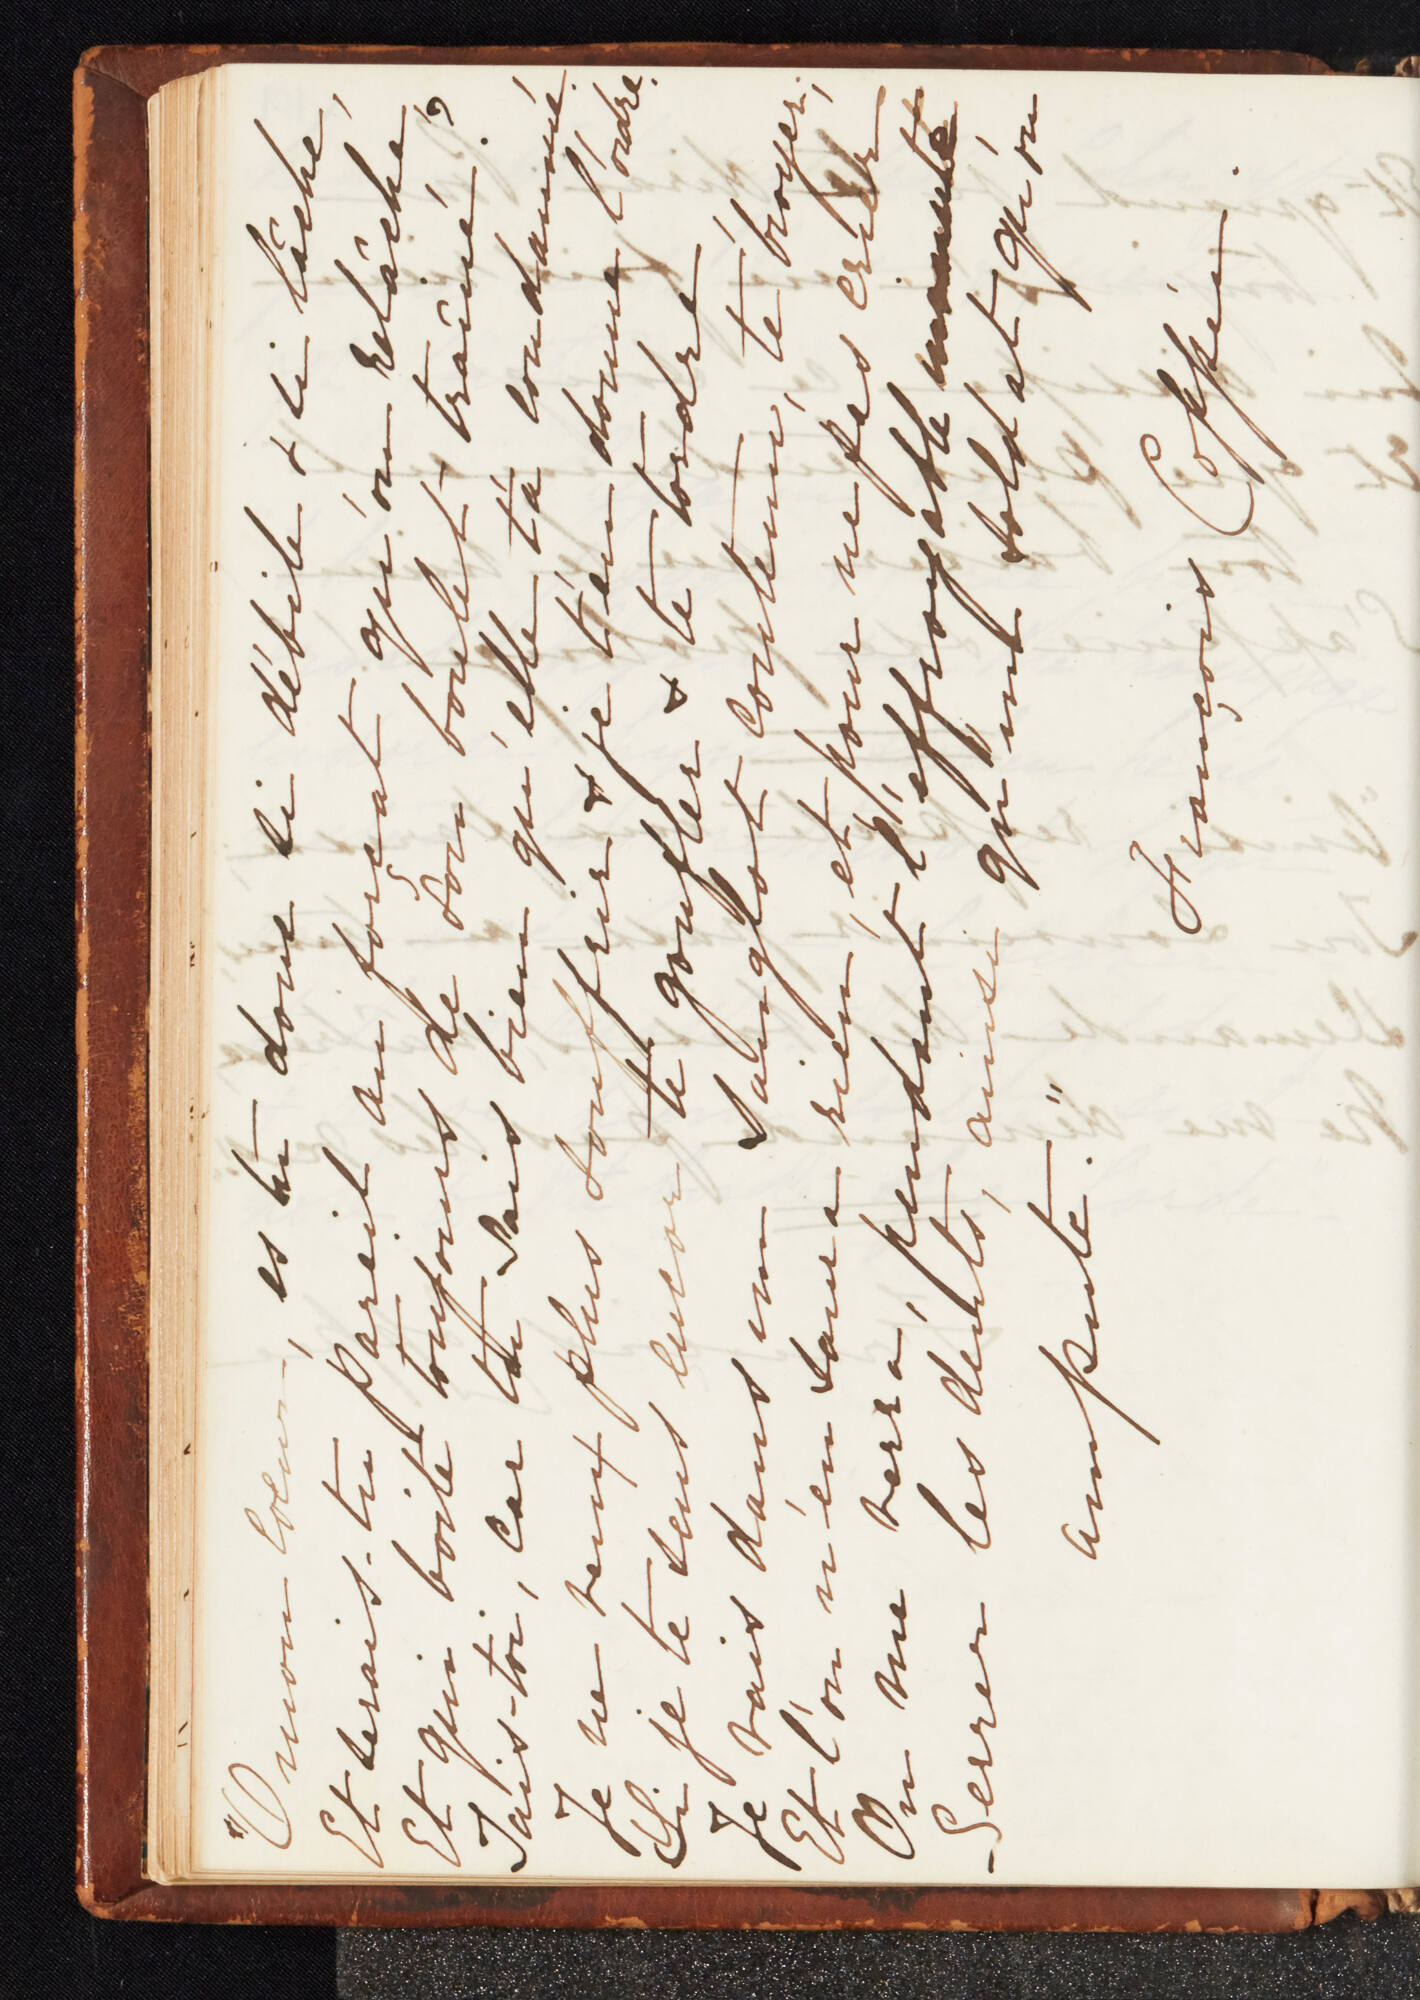 "O mon coeur, es tu donc si débile & si lâche,
Et serais-tu pareil au forçat qu'on relâche,
Et qui boite toujours de son boulet trainé?
Tais-toi, car tu sais bien qu'elle t'a condamné.
Je ne veux plus souffrir & je t'en donne l'ordre.
Si je te sens encor te gonfler & te tordre
Je vais dans un sanglot contenu, te broyer;
Et l'on n'en saura rien, et pour ne pas crier
On me verra, pendant l'effroyable minute
Serrer les dents, ainsi qu'un soldat qu'on
ampute."
François Coppée.